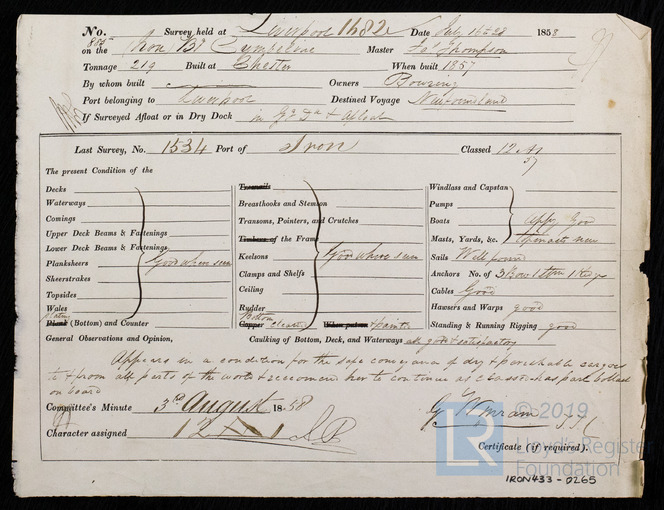 No. Survey held at Liverpool 1682 Date July 16 & 28 1858
on the Iron Bk Master Jas Thompson
Tonnage 219 Built at Chester When built 1857
By whom built Owners Bowring
Port belonging to Liverpool Destined Voyage Newfoundland
If Surveyed Afloat or in Dry Dock in & Afloat
Last Survey, No. 1534 Port of Iron Classed 12 A1
57
The present Condition of the
Decks
Waterways
Comings
Upper Deck Beams & Fastenings
Lower Deck Beams & Fastenings
Planksheers Good where seen
Sheerstrakes
Topsides
Wales
Plating
Plank (Bottom) and Counter
Treenails
Breasthooks and Stemson
Transoms, Pointers, and Crutches
Timbers of the Frame
Keelsons Good where seen
Clamps and Shelfs
Ceiling
Rudder
Bottom
Copper cleaned When put on & painted
Windlass and Capstan
Pumps
Boats appy Good
Masts, Yards, &c.
Sails Well found
Anchors No. of 3 Bow 1 Stm 1 Kedge
Cables Good
Hawsers and Warps good
Standing & Running Rigging good
General Observations and Opinion, Caulking of Bottom, Deck, and Waterways all good & satisfactory
Appears in a condition for the safe conveyance of dry & perishable cargoes
to & from all parts of the world & recommend her to continue as classed. Has part ballast
on board
Committee's Minute 3rd August 1858
Character assigned 12 A 1
Certificate (if required).
© 2019
Lloyd's Register
Foundation
LR
IRON433-0265